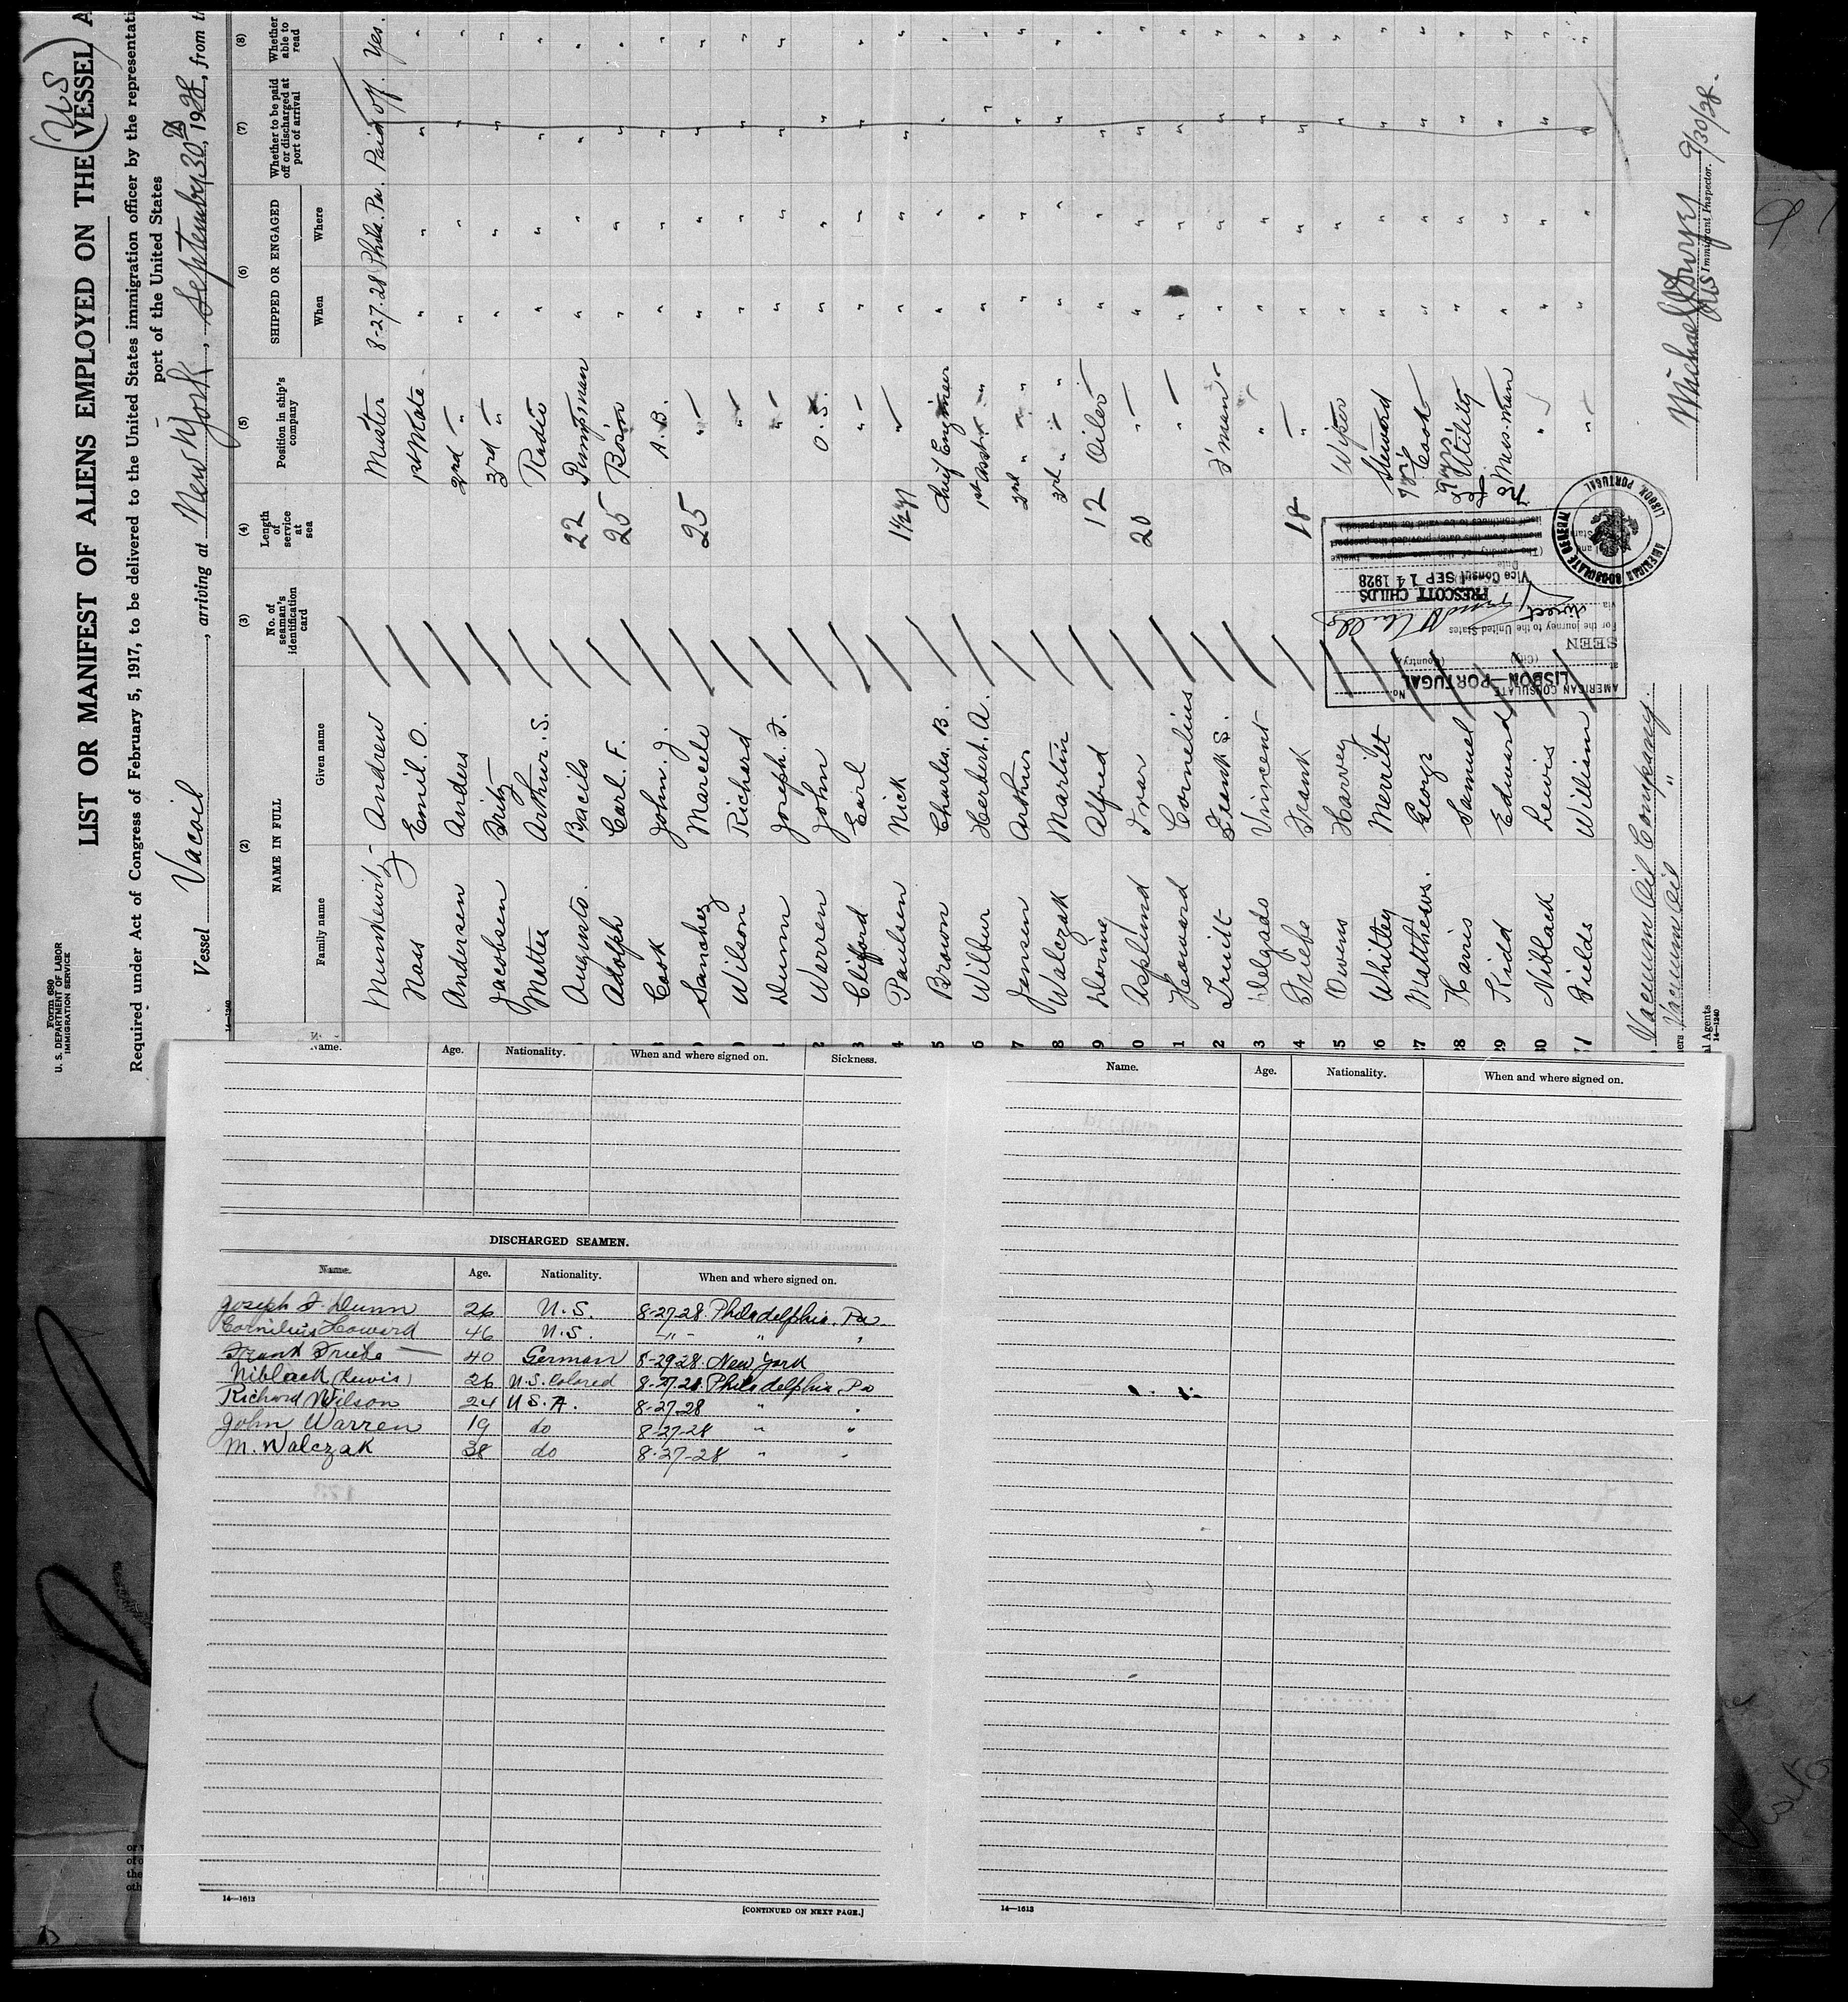 Form 680
U. S. DEPARTMENT OF LABOR
IMMIGRATION SERVICE
LIST OR MANIFEST OF ALIENS EMPLOYED ON THE VESSEL A
(US)
Required under Act of Congress of February 5, 1917, to be delivered to the United States immigration officer by the representati
port of the United States
Vessel Vacoil, arriving at New York, September 30th, 1928, from t
14—1240
(2) (3) (4) (5) (6) (7) (8)
NAME IN FULL No. of seaman's identification card Length of service at sea Position in ship's company SHIPPED OR ENGAGED Whether to be paid off or discharged at port of arrival Whether able to read
Family name Given name When Where
Munkewitz Andrew Master 8-27-28 Phila. Pa. Paid off. Yes.
Nass Emil. O. 1st Mate " " " "
Andersen Anders 2nd " " " " "
Jacobsen Fritz 3rd " " " " "
Mattes Arthur. S. Radio " " " "
Augusto. Bacilo 22 Pumpman " " " "
Adolph Carl. F. 25 Bos'n " " " "
Cook John. J. A. B. " " " "
Sanchez Marcelo 25 " " " " "
Wilson Richard " " " " "
1 Dunn Joseph. F. " " " " "
2 Warren John O. S. " " " "
3 Clifford Earl " " " " "
4 Paulsen Nick 1½ yr " " " " "
5 Brown Charles. B. Chief Engineer " " " "
6 Wilbur Herbert. A. 1st Asst " " " " "
7 Jensen Arthur 2nd " " " " " "
8 Walczak Martin 3rd " " " " " "
9 Doring Alfred 12 Oiler " " " "
0 Asplund Ivar 20 " " " " "
1 Howard Cornelius " " " " "
2 Truitt Frank S. F'man " " " "
3 Delgado Vincent " " " " "
4 Friebe Frank 18 " " " " "
5 Owens Harvey Wiper " " " "
26 Whitley Merritt Steward " " " "
27 Matthews. George Cook " " " "
28 Harris Samuel Utility " " " "
29 Kidd Edward Mes-man " " " "
30 Niblack Lewis " " " " "
31 Fields William " " " " "
AMERICAN CONSULATE
LISBON PORTUGAL
No.
at (City) (Country)
SEEN
For the journey to the United States
via direct
PRESCOTT CHILDS
Vice Consul SEP 14 1928
Date
AMERICAN CONSULATE GENERAL
LISBON, PORTUGAL
Vacuum Oil Company.
ners Vacuum Oil "
al Agents
14—1240
Michael Dwyer 9/30/28.
US Immigrant Inspector.
Name. Age. Nationality. When and where signed on. Sickness.
DISCHARGED SEAMEN.
Name. Age. Nationality. When and where signed on.
Joseph F. Dunn 26 U. S. 8-27-28. Philadelphia. Pa
Cornelius Howard 46 U. S. " " "
Frank Friebe 40 German 8-29-28. New York
Niblack (Lewis) 26 U.S. Colored 8-27-28. Philadelphia, Pa
Richard Wilson 24 U. S. A. 8-27-28 " "
John Warren 19 do 8-27-28 " "
M. Walczak 38 do 8-27-28 " "
14—1613
[CONTINUED ON NEXT PAGE.]
Name. Age. Nationality. When and where signed on.
14—1613